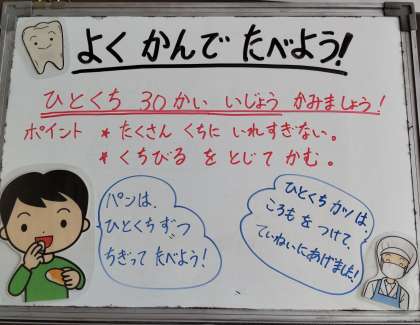 よく かんで たべよう!
ひとくち 30かい いじょう かみましょう!
ポイント * たくさん くちに いれすぎない。
* くちびる を とじて かむ。
パンは、
ひとくちずつ
ちぎって たべよう!
ひとくちカツは、
ころもを つけて、
ていねいにあげました!